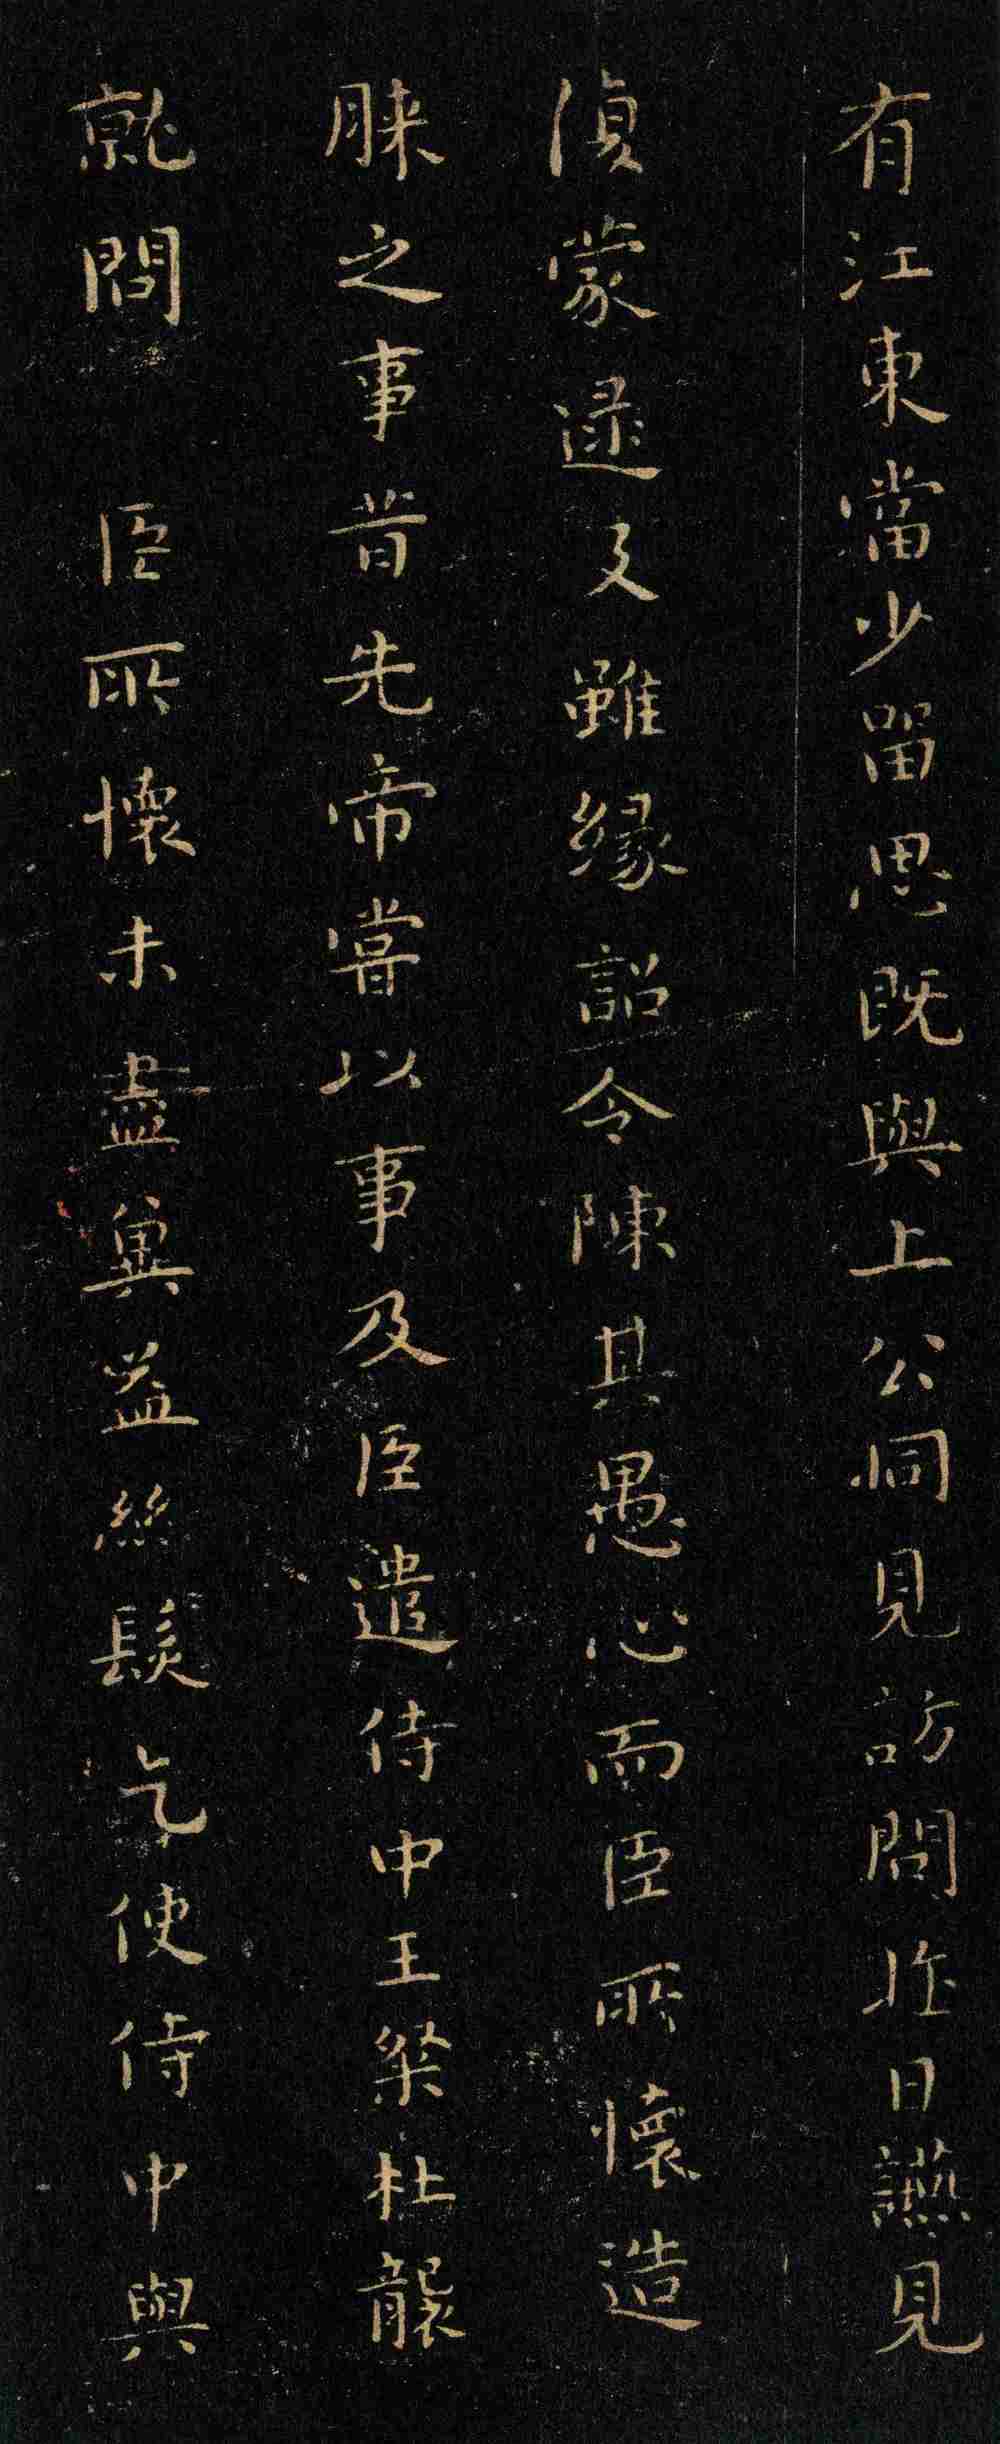 有江東當少留思既與上公同見訪問昨日讌見
復蒙逮及雖緣詔令陳其愚心而臣所懷造
膝之事昔先帝嘗以事及臣遣侍中王粲杜襲
就問臣所懷未盡冀益絲髮乞使侍中與